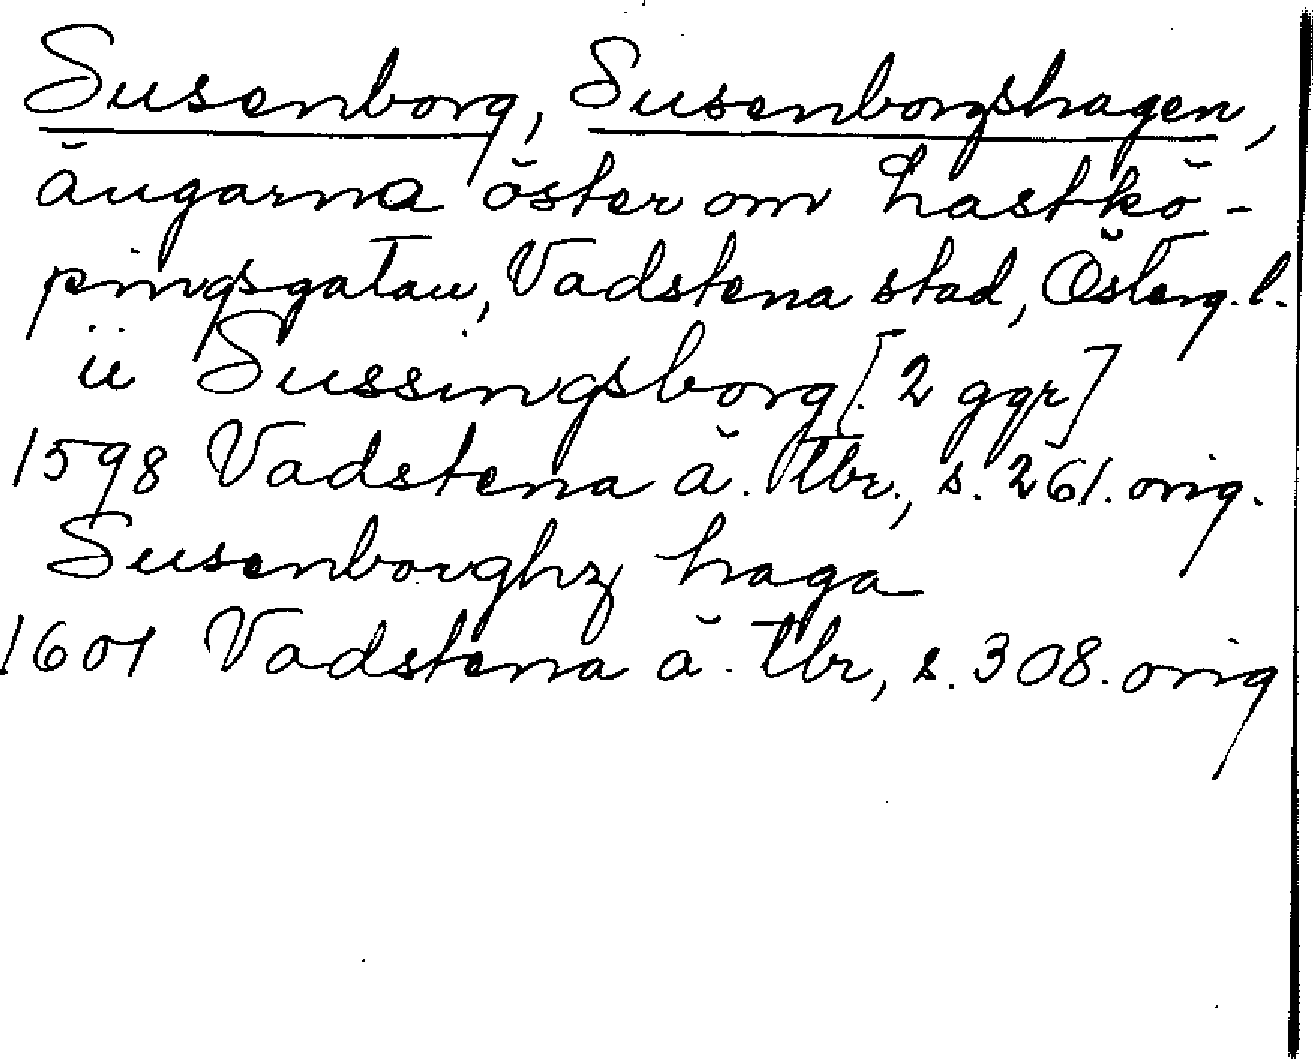 Susenborg, Susenborgshagen,
ängarna öster om Lastkö-
pingsgatan, Vadstena stad, Österg. l.
ii Sussingsborg [2 ggr]
1598 Vadstena ä. tbr., s. 261. orig.
Susenborghz haga
1601 Vadstena ä. tbr, s. 308. orig